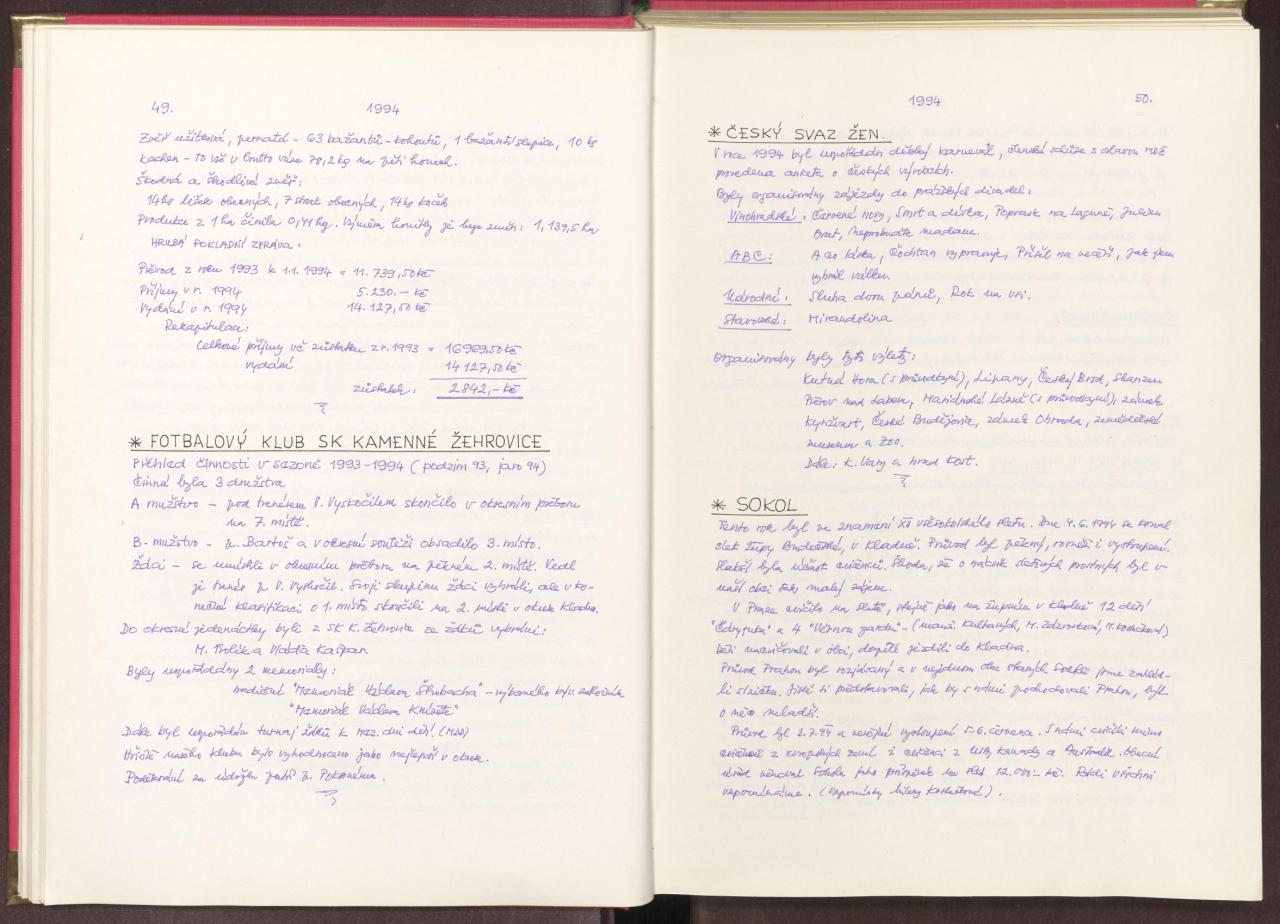 49. 1994
Zvěř užitková, pernatá - 63 bažantů-kohoutů, 1 bažantí slepice, 10 ks
kachen - to vše v
Škodná a škodlivá zvěř:
14ks lišek obecných, 7 strak obecných, 14ks koček
Produkce z 1 ha činila 0,41 kg. Výměra honitby je beze změn: 1,139,5 ha
HRUBÁ POKLADNÍ ZPRÁVA:
Převod z roku 1993 k 1.1.1994 = 11.739,50 kč
Příjmy v r. 1994 5.230.- kč
Vydání v r. 1994 14.127,50 kč
Rekapitulace:
Celkové příjmy vč zůstatku z r. 1993 = 16969,50 kč
vydání 14127,50 kč
zůstatek: 2842,- kč
* FOTBALOVÝ KLUB SK KAMENNÉ ŽEHROVICE
Přehled činnosti v sezoně 1993-1994 (podzim 93, jaro 94)
Činná byla 3 družstva
A mužstvo - pod trenérem V. Vyskočilem skončilo v okresním přeboru
na 7. místě.
B- mužstvo - p. Bartoš a v okresní soutěži obsadilo 3. místo.
Žáci - se umístili v okresním přeboru na pěkném 2. místě. Vedl
je trenér p. V. Vyskočil. Svoji skupinu žáci vyhráli, ale v ko-
nečné klasifikaci o 1. místo skončili na 2. místě v okrese Kladno.
Do okresní jedenáctky byli z SK K. Žehrovice ze žáků vybráni:
M. Frolík a Vláďa Kašpar.
Byly uspořádány 2 memoriály:
tradiční "Memoriál Václava Škrobacha" - výborného býv. záložníka
"Memoriál Václava Knížete"
Dále byl uspořádán turnaj žáků k mez. dni dětí. (MDD)
Hřiště našeho klubu bylo vyhodnoceno jako nejlepší v okrese.
Poděkování za údržbu patří p. Pokornému.
1994 50.
* ČESKÝ SVAZ ŽEN
V roce 1994 byl uspořádán dětský karneval, členská schůze s oslavou MDŽ
provedena anketa o českých výrobcích.
Byly organisovány zájezdy do pražských divadel:
Vinohradské: Červené nosy, Smrt a dívka, Poprask na Laguně,
Brat, Neprobuďte madam.
ABC: A co láska, Čochtan vypravuje, Přišel na večeři, Jak jsem
vyhrál válku.
Národní: Sluha dvou pánů, Rok na vsi.
Stavovské: Mirandolina
Organisovány byly tyto výlety:
Kutná Hora (s průvodkyní), Lipany, Český Brod, Skanzen
Přerov nad Labem, Mariánské Lázně (s průvodkyní), zámek
Kynžvart, České Budějovice, zámek Ohrada, zemědělské
museum a Zoo.
Dále: K. Vary a hrad Kost.
* SOKOL
Tento rok byl ve znamení XII všesokolského sletu. Dne 4.6.1994 se konal
slet župy Budečské, v Kladně. Průvod byl pěkný, rovněž i vystoupení.
Slabší byla účast cvičenců. Škoda, že o nácvik sletových prostných byl v
naší obci tak malý zájem.
V Praze cvičilo na sletě, stejně jako na župním v Kladně 12 dětí
a 4 "Věrnou gardu" -
Děti nacvičovali v obci, dospělí jezdili do Kladna.
Průvod Prahou byl
Jistě si představovali, jak by s námi pochodovali Prahou, být
o něco mladší.
Průvod byl 3.7.94 a veřejná vystoupení 5-6. července. S námi cvičili mimo
cvičenců z evropských zemí i cvičenci z USA, Kanady a Austrálie. Obecní
úřad věnoval Sokolu jako příspěvek na slet 12.000.- kč. Rádi všichni
vzpomínáme. (Vzpomínky Mileny )